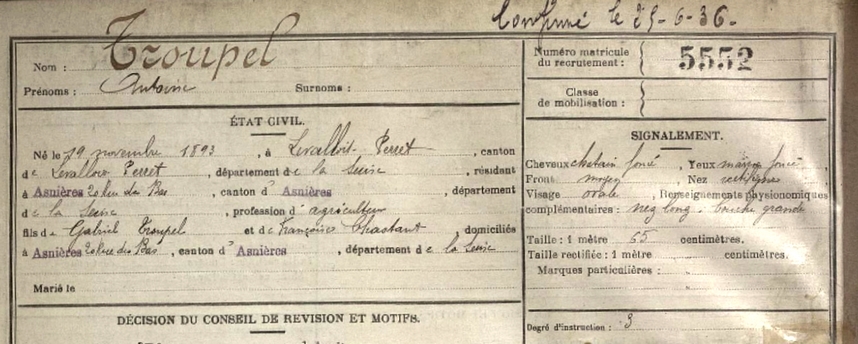 Confirmé le 25-6-36-
Nom : Troupel
Prénoms : Antoine Surnoms :
Numéro matricule du recrutement : 5552
Classe de mobilisation :
ÉTAT CIVIL.
Né le 29 novembre 1893, à Levallois Perret, canton
de Levallois Perret, département de la Seine, résidant
à Asnières 20 Rue du Bas, canton d' Asnières, département
de la Seine, profession d' agriculteur
fils de Gabriel Troupel et de Françoise Chastant, domiciliés
à Asnières 20 Rue des Bas, canton d' Asnières, département de la Seine
Marié le
DÉCISION DU CONSEIL DE REVISION ET MOTIFS.
SIGNALEMENT.
Cheveux chatain foncé, Yeux marron foncé
Front moyen, Nez rectiligne
Visage ovale, Renseignements physionomiques
complémentaires : nez long. bouche grande
Taille : 1 mètre 65 centimètres.
Taille rectifiée : 1 mètre centimètres.
Marques particulières :
Degré d'instruction : 3